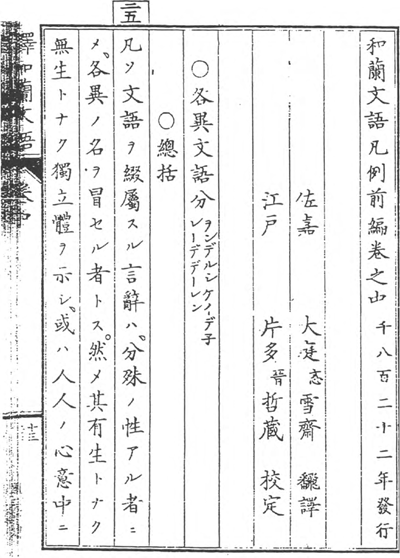 和蘭文語凡例前編卷之 千八百二十二年發行
佐嘉 大庭 雪齋 飜譯
江戸 片多 哲藏 校定
○各異文語分 ヲンデルシケイデ子 レーデデーレン
○總括
凡ソ文語ヲ綴屬スル言辭ハ、分殊ノ性アル者ニ
メ、各異ノ名ヲ冒セル者トス。然メ其有生トナク
無生トナク獨立體ヲ示シ、或ハ人人ノ心意中ニ
譯和蘭文語
二五
十三